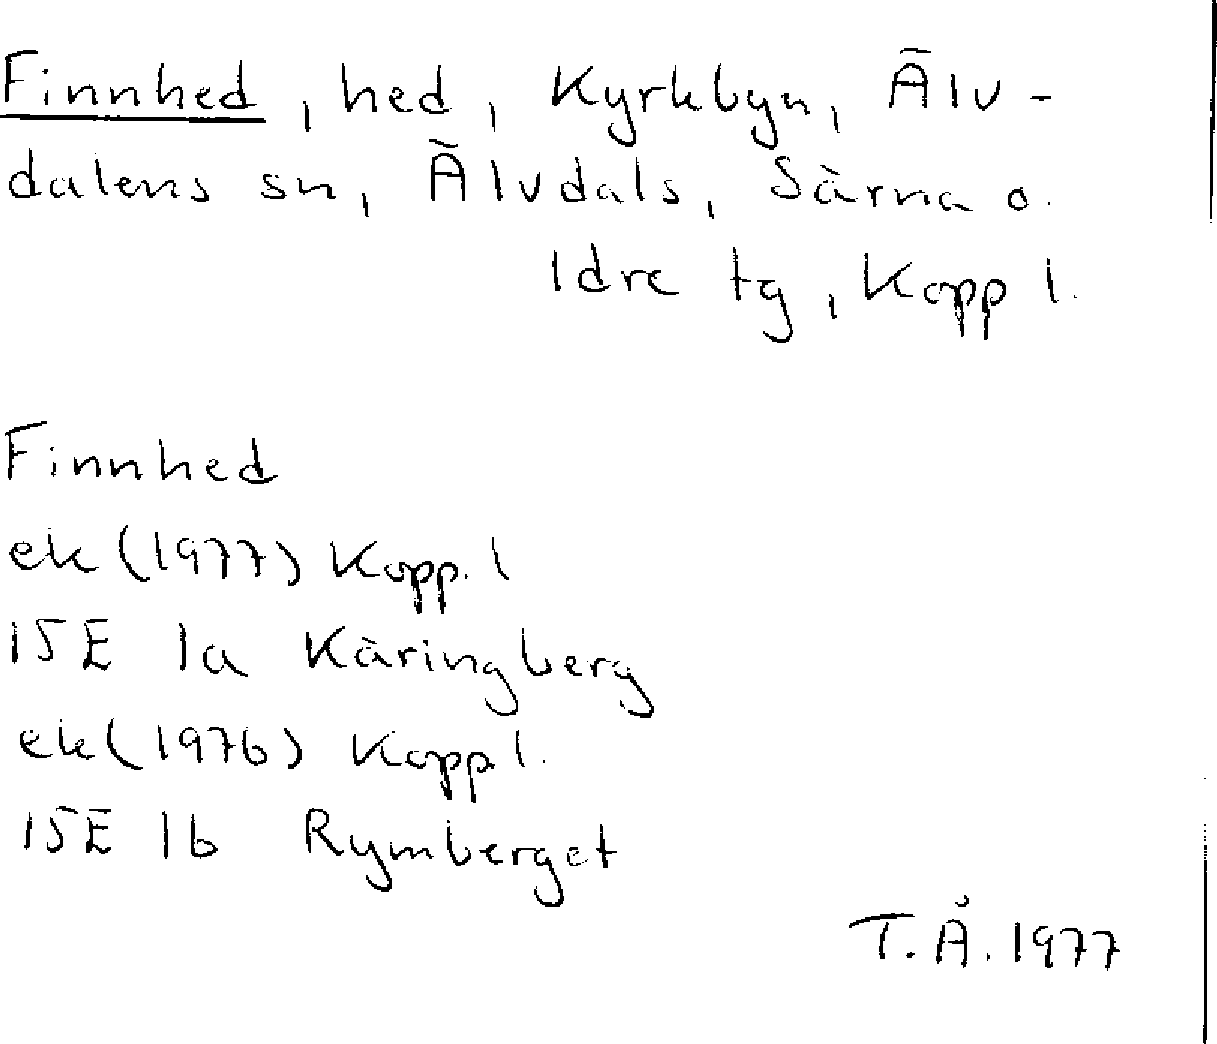 Finnhed, hed, Kyrkbyn, Älv-
dalens sn, Älvdals, Särna o.
Idre tg, Kopp l.
Finnhed
ek (1977) Kopp. l
15E 1a Käringberg
ek (1976) Kopp l.
15E 1b Rymberget
T.Å. 1977